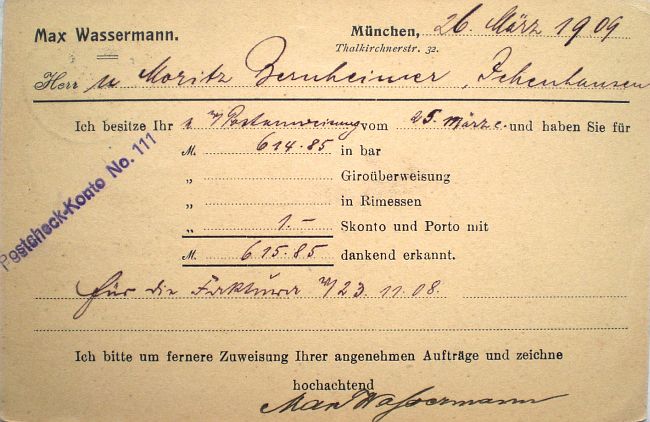 Max Wassermann.
München, 26. März 1909
Thalkirchnerstr. 32.
Herr Moritz Bernheimer, Ichenhausen
Ich besitze Ihr Postanweisung vom 25. März c. und haben Sie für
M. 614.85 in bar
„ Giroüberweisung
„ in Rimessen
„ 1.- Skonto und Porto mit
M. 615.85 dankend erkannt.
Postcheck-Konto No. 111
für die Faktura 23.11.08.
Ich bitte um fernere Zuweisung Ihrer angenehmen Aufträge und zeichne
hochachtend
Max Wassermann